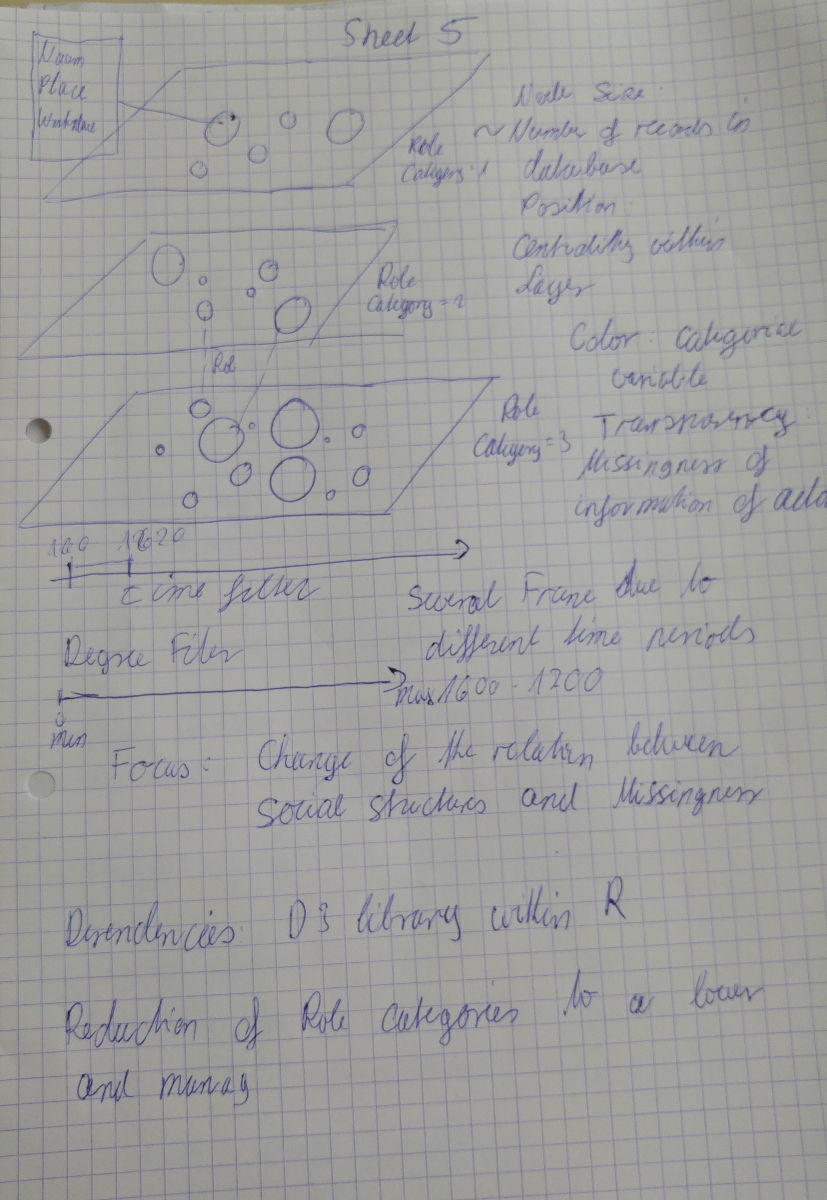 Sheet 5
Naam
Place
Workplace
Role
Category = 1
Node Size:
~ Number of records in
database
Position:
Centrality within
Layer
Role
Category = 2
Color: Categorical
variable
Transparency:
Missingness of
information of
Role
Role
Category = 3
1620
time filter
Several Frame due to
different time periods
1600 - 1200
Degree Filter
0
min
max
Focus: Change of the relation between
Social structures and Missingness
Dependencies: D3 library within R
Reduction of Role categories to a lower
and manag